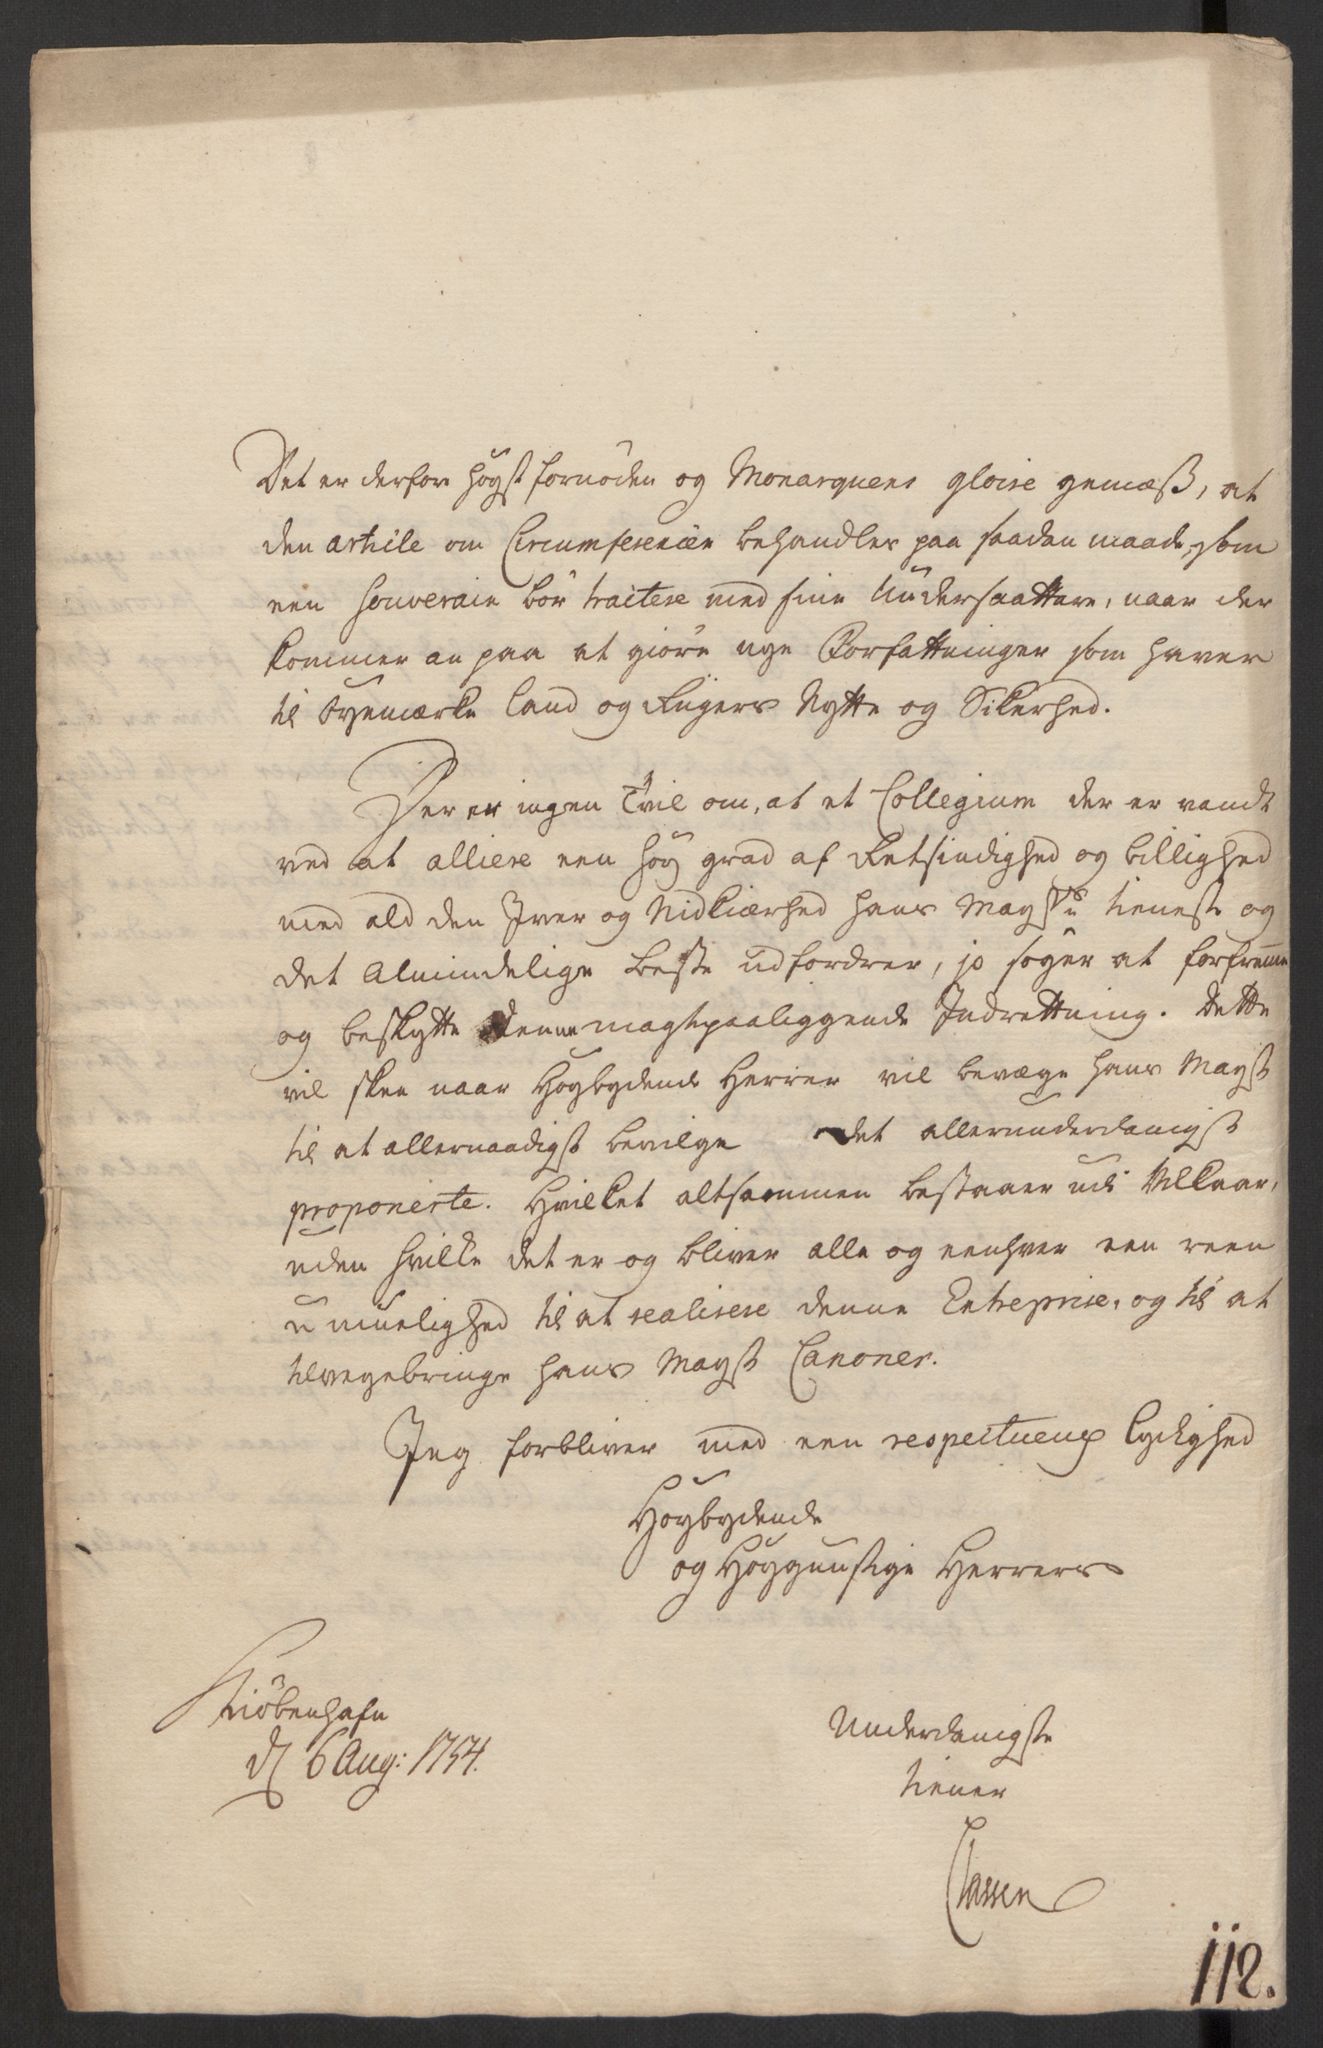 Det er derfor högst fornöden og Monarquens gloire gemæß, at
den article om Circumferencen behandles paa saadan maade, som
een souverain bör traitere med sine Undersaattere, naar der
kommer an paa at giöre nye Forfattninger som haver
til Öyemærke Land og Rigers Nytte og Sikerhed.
Der er ingen Tvil om, at et Collegium der er vandt
ved at alliere een höy grad af Retsindighed og billighed
med ald den Iver og Nidkiærhed hans Mayst:s tieneste og
det Almindelige beste udfordrer, jo söger at forfremme
og beskytte denne magtpaaliggende Indrettning. Dette
vil skee naar Höybydende Herrer vil bevæge hans Mayst
til at allernaadigst bevilge det allerunderdanigst
proponerte. Hvilket altsammen bestaaer udi Vilkaar,
uden hvilke det er og bliver alle og eenhver een reen
umuelighed til at realisere denne Entreprise, og til at
tilvegebringe hans Mayst Canoner.
Jeg forbliver med een respectueux Lydighed
Höybydende
og Höygunstige Herrers
Kiöbenhafn
d 6 Aug: 1754.
Underdanigste
tiener
Classen
112.